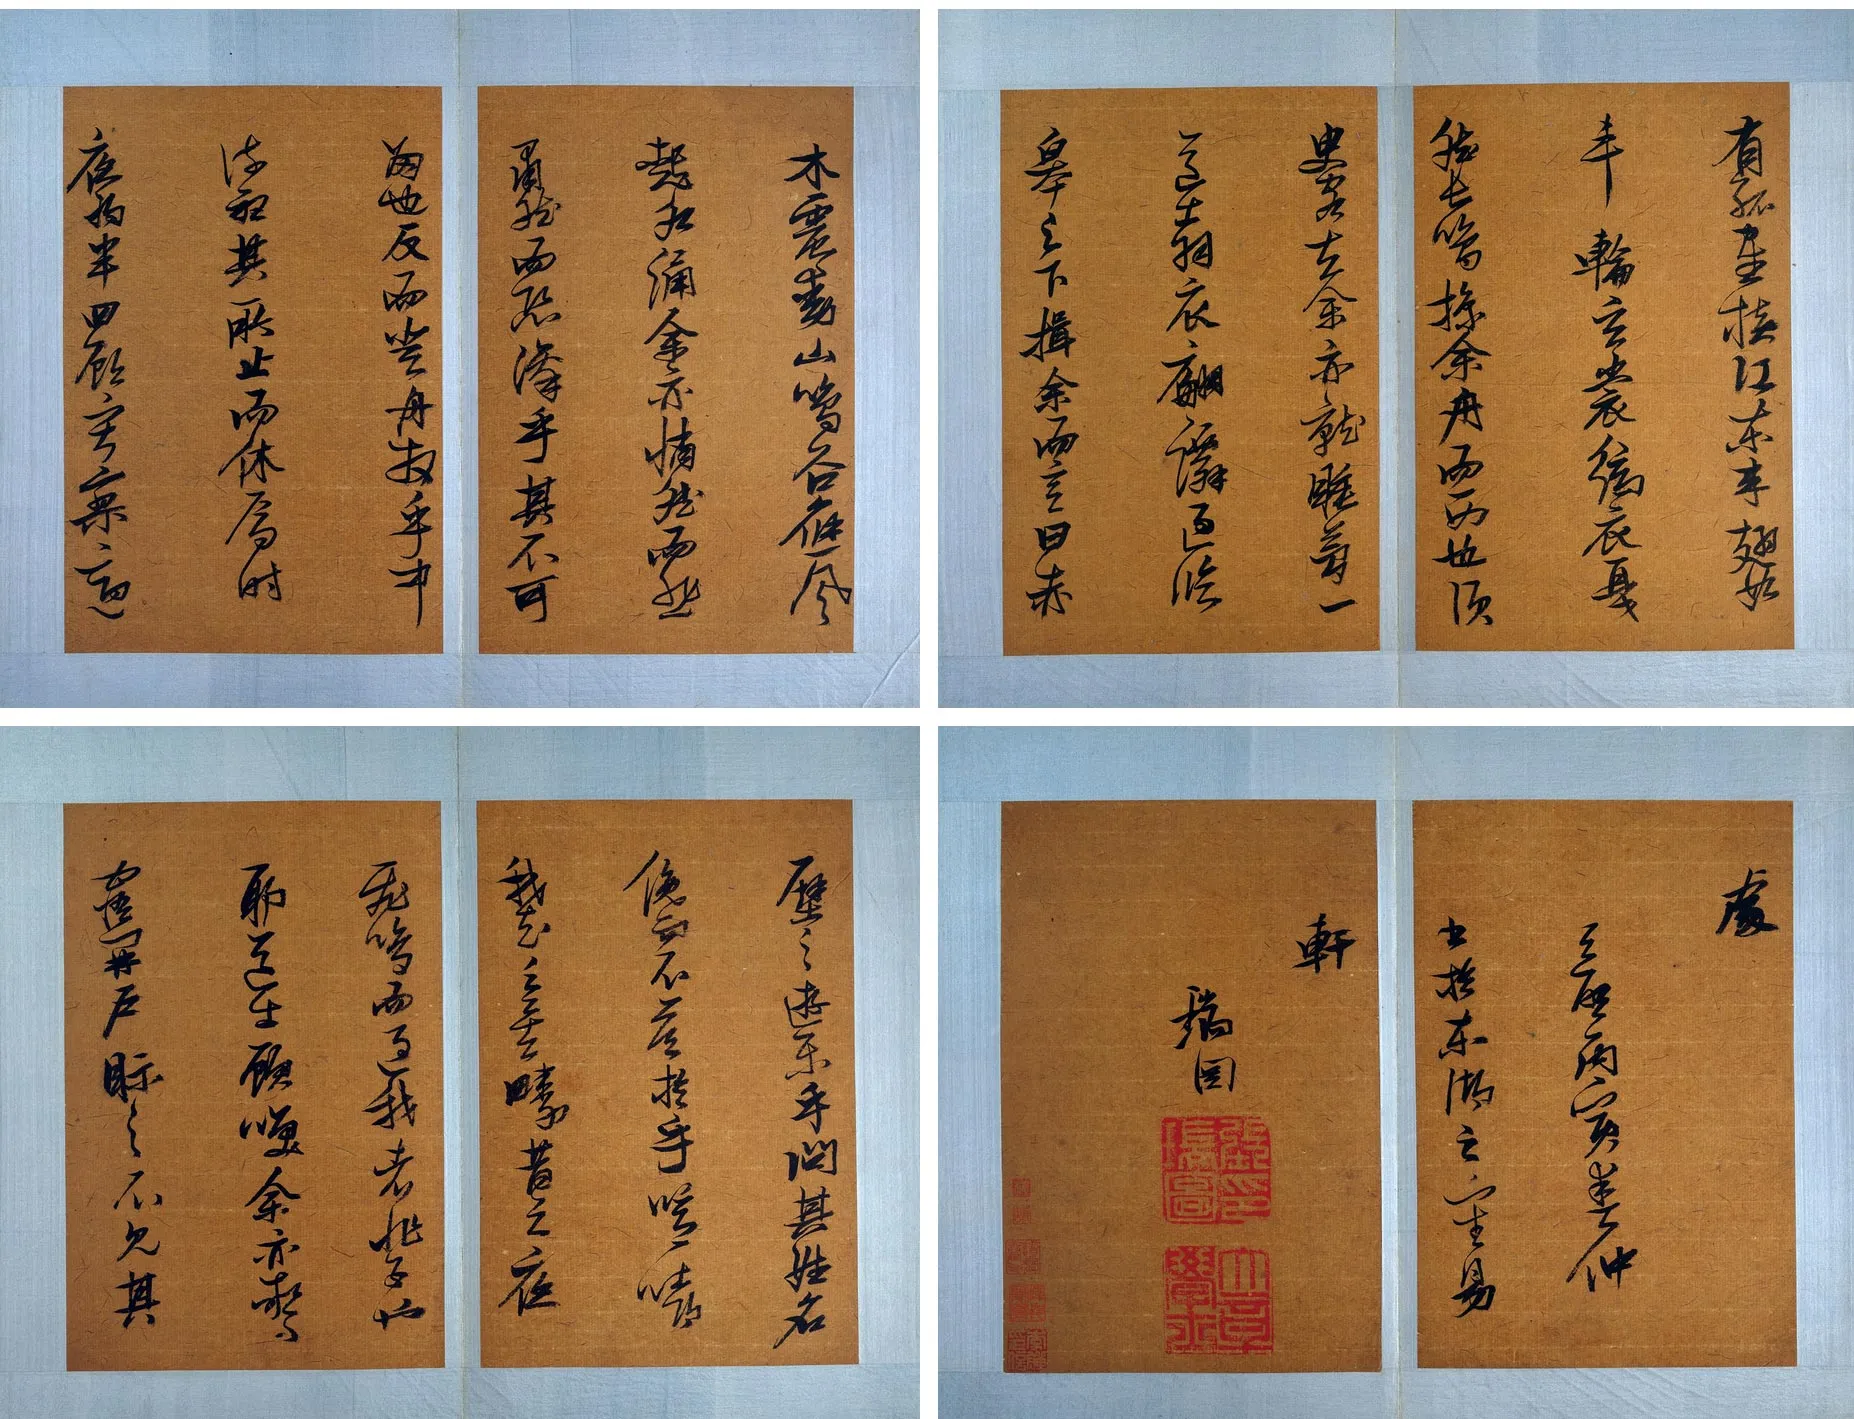 木震動山鳴谷應風
起水涌余亦悄然而悲
肅然而恐凜乎其不可
留也反而登舟放乎中
流聽其所止而休焉時
夜將半四顧寂寥適
有孤鶴橫江東來翅如
車輪玄裳縞衣戛
然長鳴掠余舟而西也須
臾客去余亦就睡夢一
道士羽衣翩躚過臨
皋之下揖余而言曰赤
壁之遊樂乎問其姓名
俛而不答於乎噫嘻
我知之矣疇昔之夜
飛鳴而過我者非子也
耶道士顧咲余亦驚
寤開戶眎之不見其
處
天啟丙寅春仲
書於東湖之易
軒
瑞圖